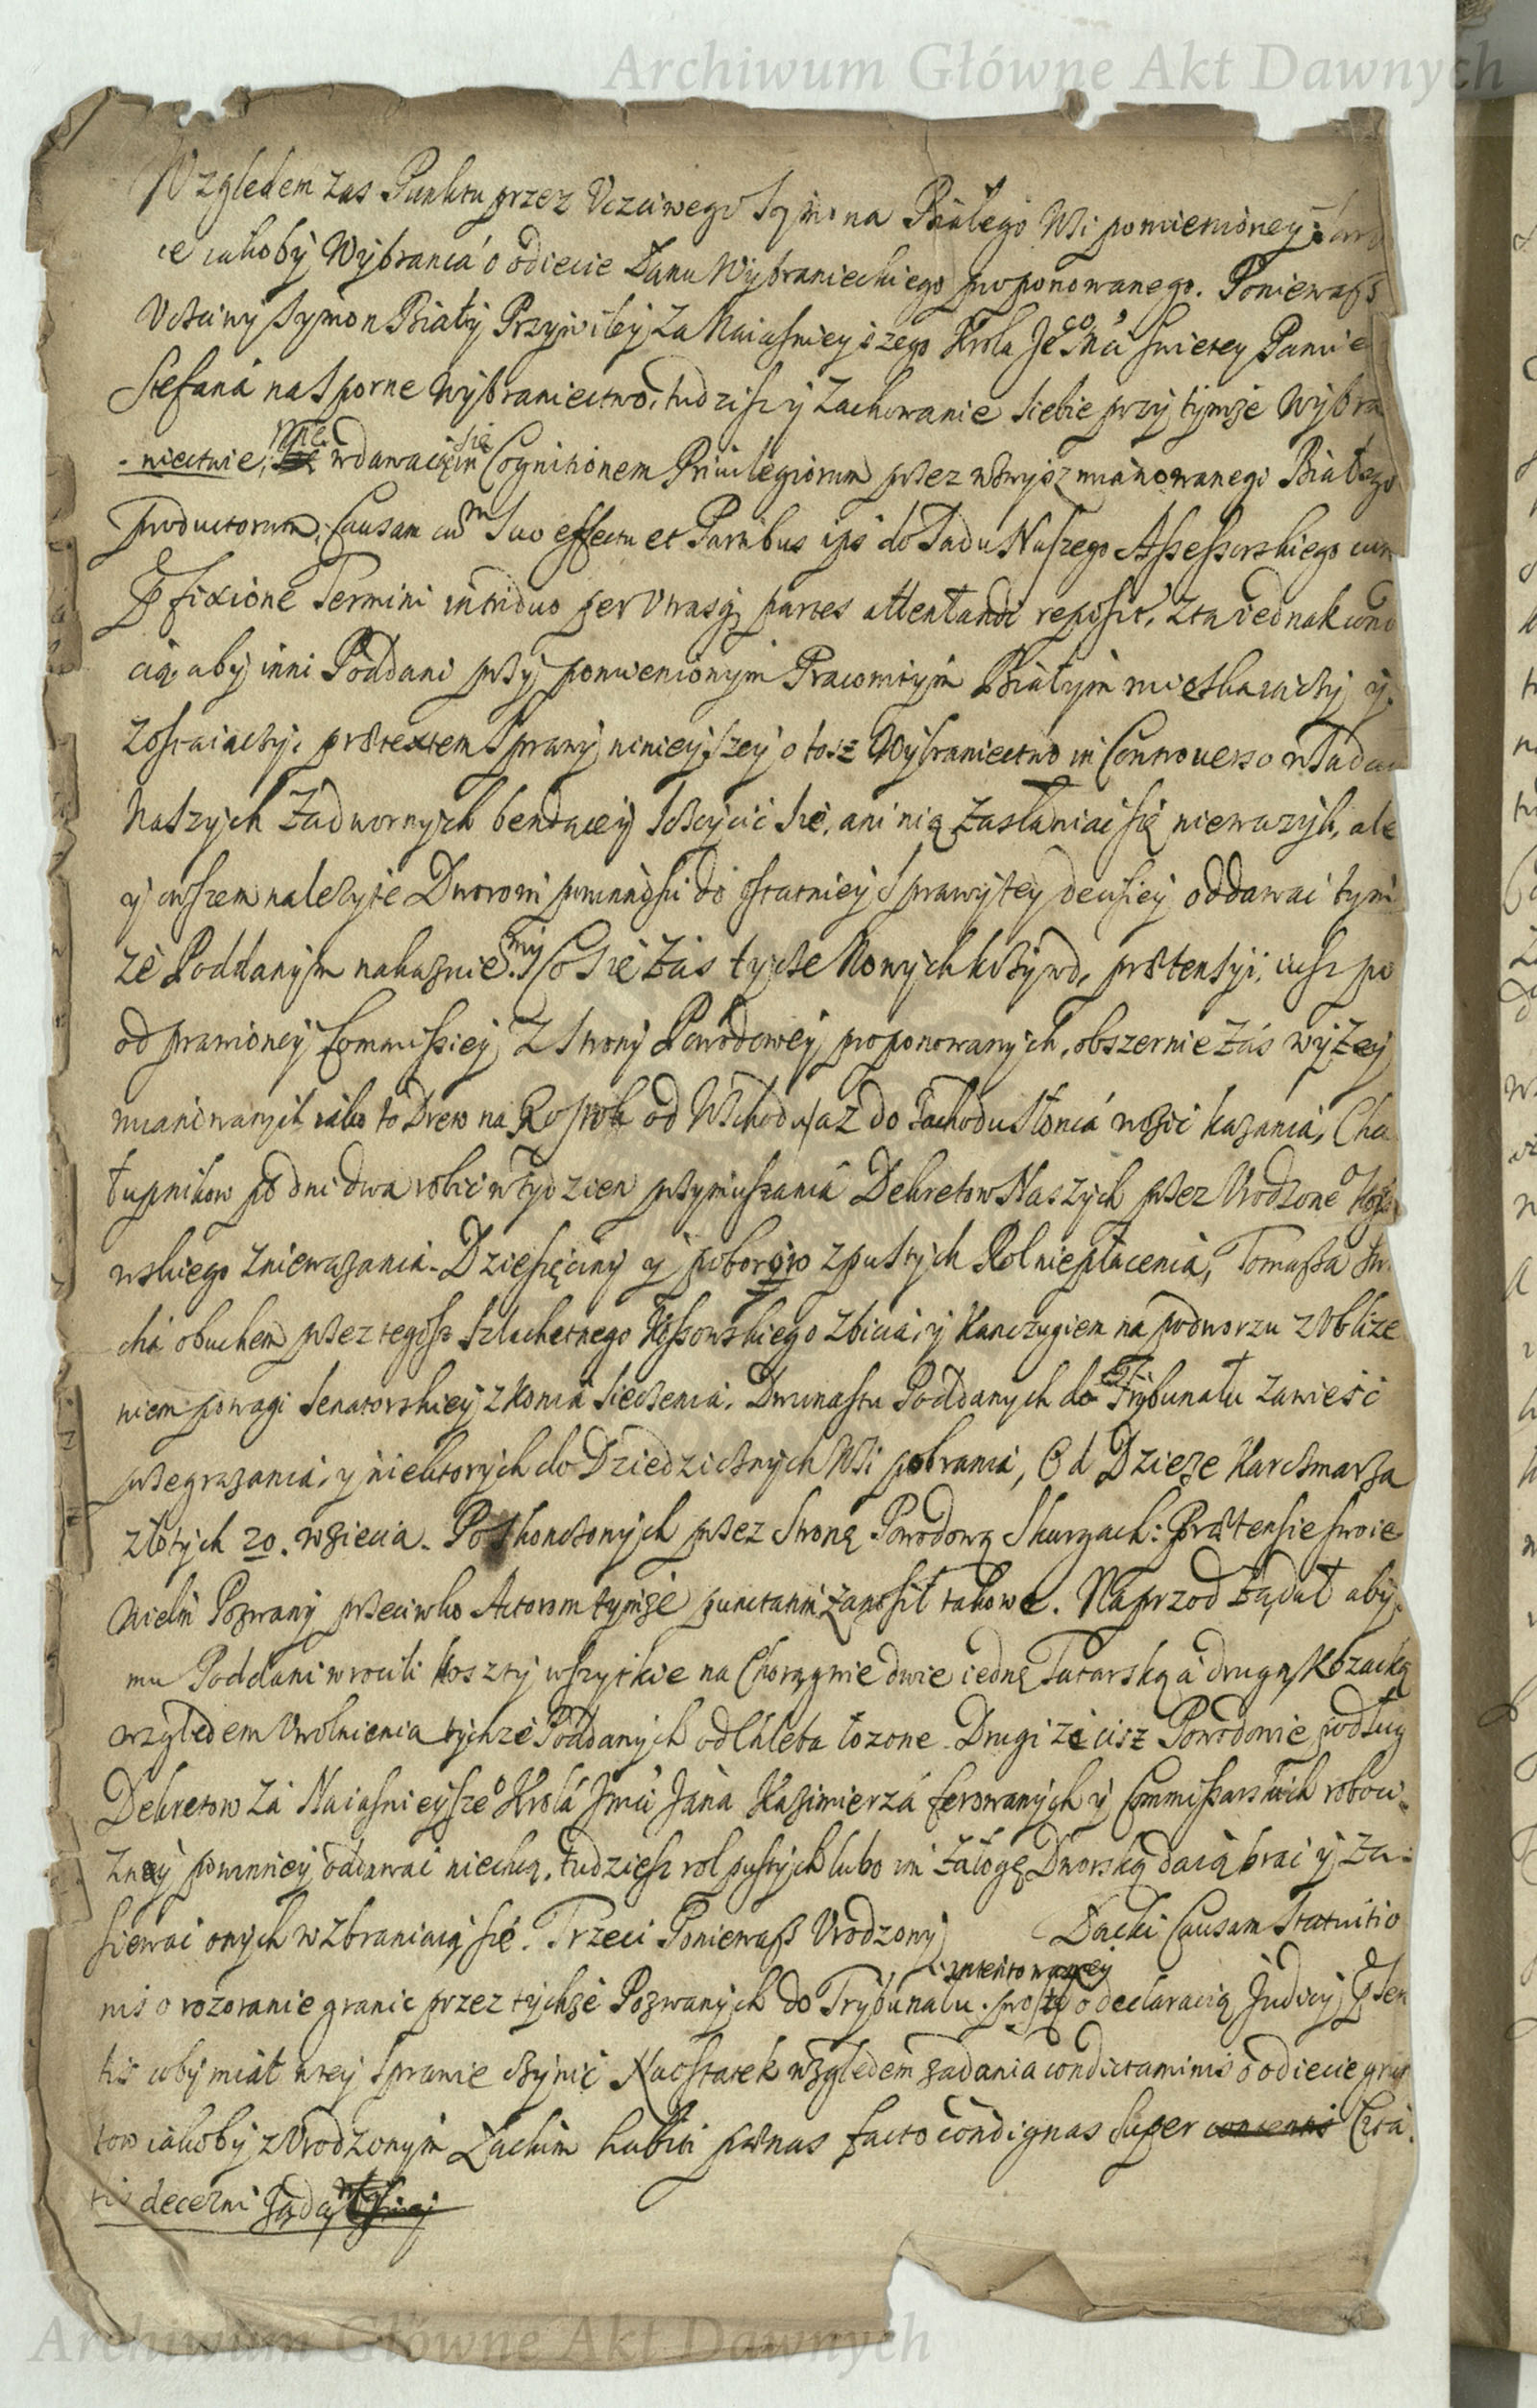 Archiwum Główne Akt Dawnych
Względem zas Punktu przez Vczciwego Symona Białego Wsi pomienioney
ce iakoby Wybranca o odięcie Łanu Wybranieckiego proponowanego. Poniewasz
Vczciwy Symon Biały Przywiley za Naiasnieyszego Krola Je͠go Mći swietey Pamię
Stefana na Sporne Wybraniectwo, tudziesz y Zachowanie siebie przy tymze Wybra
-niectwie, nie wdawaiąc się in Cognitionem Priuilegiorum przez wzwysz mianowanego Białego
productorum, Causam cum Suo effectu et Partibus ipis do Sadu Naszego Assessorskiego cum
Pfixione Termini in triduo per Vtrasq partes attentandi reposit, z tą iednak con
cią aby inni Poddani przy pomienionym Pracowitym Białym mieszkaiący y
Zostaiący, prætextem Sprawy ninieyszey o tosz Wybraniectwo in Controuerso w Sadach
Naszych Zadwornych będącey sczycić się, ani nią zasłaniac się nieważyli, ale
y owszem nalezyte Dworowi powinnosci do ostatniey Sprawy tey decisiey oddawac tym
ze Poddanym nakazuiemy. Co się zas tycze Nowych krzywd, prætensyi, iusz po
odprawioney Commissiey z Strony Powodowey proponowanych, obszernie zas wyżey
mianowanych iako to Drew na od Wschodu az do Zachodu Słonca wozic kazania, Cha
łupnikow po dni dwa robic w tydzien przymuszania Dekretow Naszych przez Vrodzone͠go
wskiego zniewazania. Dziesięciny y poborow z pustych Rol niepłacenia, Tomasza
cha obuchem przez tegosz Szlachetnego Kossowskiego zbicia, y Kanczugiem na podworzu z Vbliże
niem powagi Senatorskiey z konia sieczenia. Dwunastu Poddanych do Trybunału zawieść
przegrazania, y niektorych do Dziedzicznych Wsi pobrania, Od Dzieze Karczmarza
złotych 20. wzięcia. Po skonczonych przez Stronę Powodową Skargach: Prætensie swoie
Wielm Pozwany przeciwko Actorom tymze punctatim zanosił takowe. Naprzod żądał aby
mu Poddani wrocili koszty wszytkie na Chorągwie dwie iednę Tatarską a drugą Kozacką
względem Vwolnienia tychze Poddanych od Chleba łozone. Drugi ze cisz Powodowie podług
Dekretow za Naiasnieysze͠go Krola Jmći Jana Kazimierza ferowanych y Commissarskich roboci-
zney powinney oddawac niechcą, tudziesz rol pustych lubo im załogę Dworską daią brac y za-
siewac onych wzbraniaią się. Trzeci Poniewasz Vrodzony Dacki Causam Statuitio
nis o rozoranie granic przez tychze Pozwanych do Trybunału intentowaney prosząc o declaracią Judicy Psen
tis coby miał w tey Sprawie czynic Naostatek względem zadania condictaminis o odięcie grun
tow iakoby z Vrodzonym Dackim habiti pænas facto condignas super Citatis
decerni żądał
Archiwum Główne Akt Dawnych